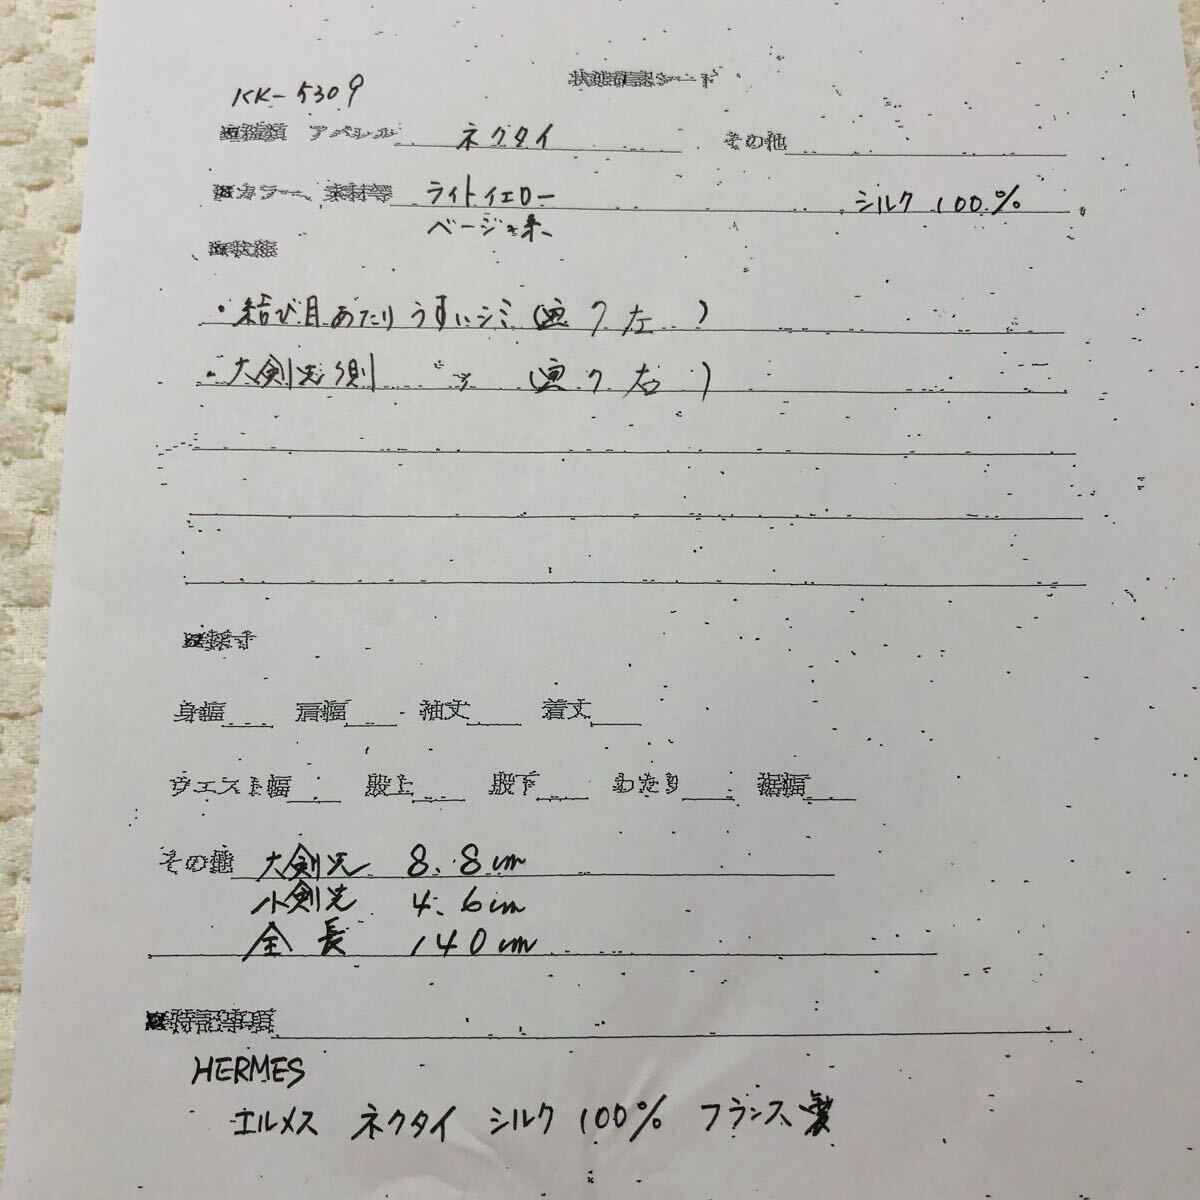 状態確認シード
KK-5309
アパレル ネクタイ その他
※カラー、素材等 ライトイエロー シルク 100%
ベージュ系
※状態
・結び目あたりうすいシミ(画7左)
・大剣先側 〃 (画7右)
※採寸
身幅 肩幅 袖丈 着丈
ウエスト幅 股上 股下 わたり 裾幅
その他 大剣先 8.8cm
小剣先 4.6cm
全長 140cm
※特記事項
HERMES
エルメス ネクタイ シルク 100% フランス製